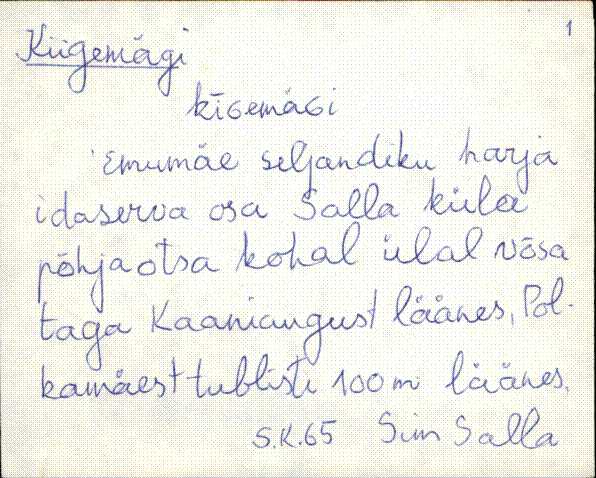 1
Kiigemägi
kīGemäGi
Emumäe seljandiku harja
idaserva osa Salla küla
põhjaotsa kohal ülal võsa
taga Kaaniaugust läänes, Pol-
kamäest tublisti 100 m läänes.
S.K.65 Sim Salla